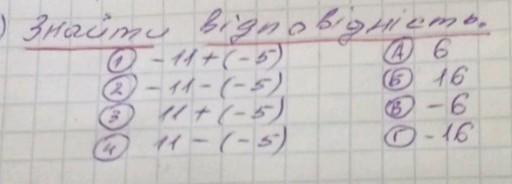 ) Знайти відповідність.
① -11+(-5) Ⓐ 6
② -11-(-5) Ⓑ 16
③ 11+(-5) Ⓒ -6
④ 11-(-5) Ⓓ -16